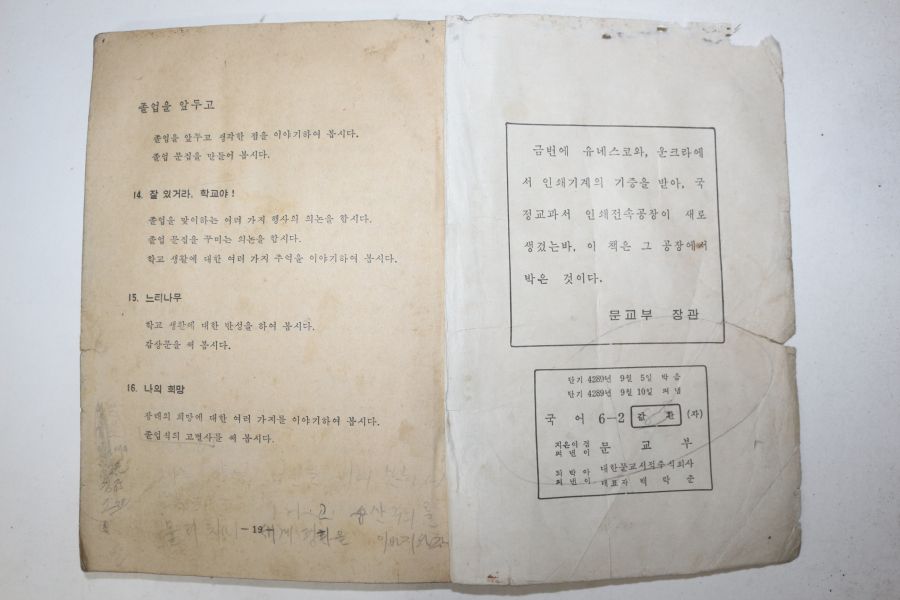 졸업을 앞두고
졸업을 앞두고 생각한 점을 이야기하여 봅시다.
졸업 문집을 만들어 봅시다.
14. 잘 있거라, 학교야!
졸업을 맞이하는 여러 가지 행사의 의논을 합시다.
졸업 문집을 꾸미는 의논을 합시다.
학교 생활에 대한 여러 가지 추억을 이야기하여 봅시다.
15. 느티나무
학교 생활에 대한 반성을 하여 봅시다.
감상문을 써 봅시다.
16. 나의 희망
장래의 희망에 대한 여러 가지를 이야기하여 봅시다.
졸업식의 고별사를 써 봅시다.
— 19
금번에 유네스코와, 운크라에
서 인쇄기계의 기증을 받아, 국
정교과서 인쇄전속공장이 새로
생겼는바, 이 책은 그 공장에서
박은 것이다.
문교부 장관
단기 4289년 9월 5일 박음
단기 4289년 9월 10일 펴냄
국 어 6—2 (자)
지은이 겸
펴낸이 문 교 부
되박아
펴낸이 대한문교서적주식회사
대표자 백 낙 준